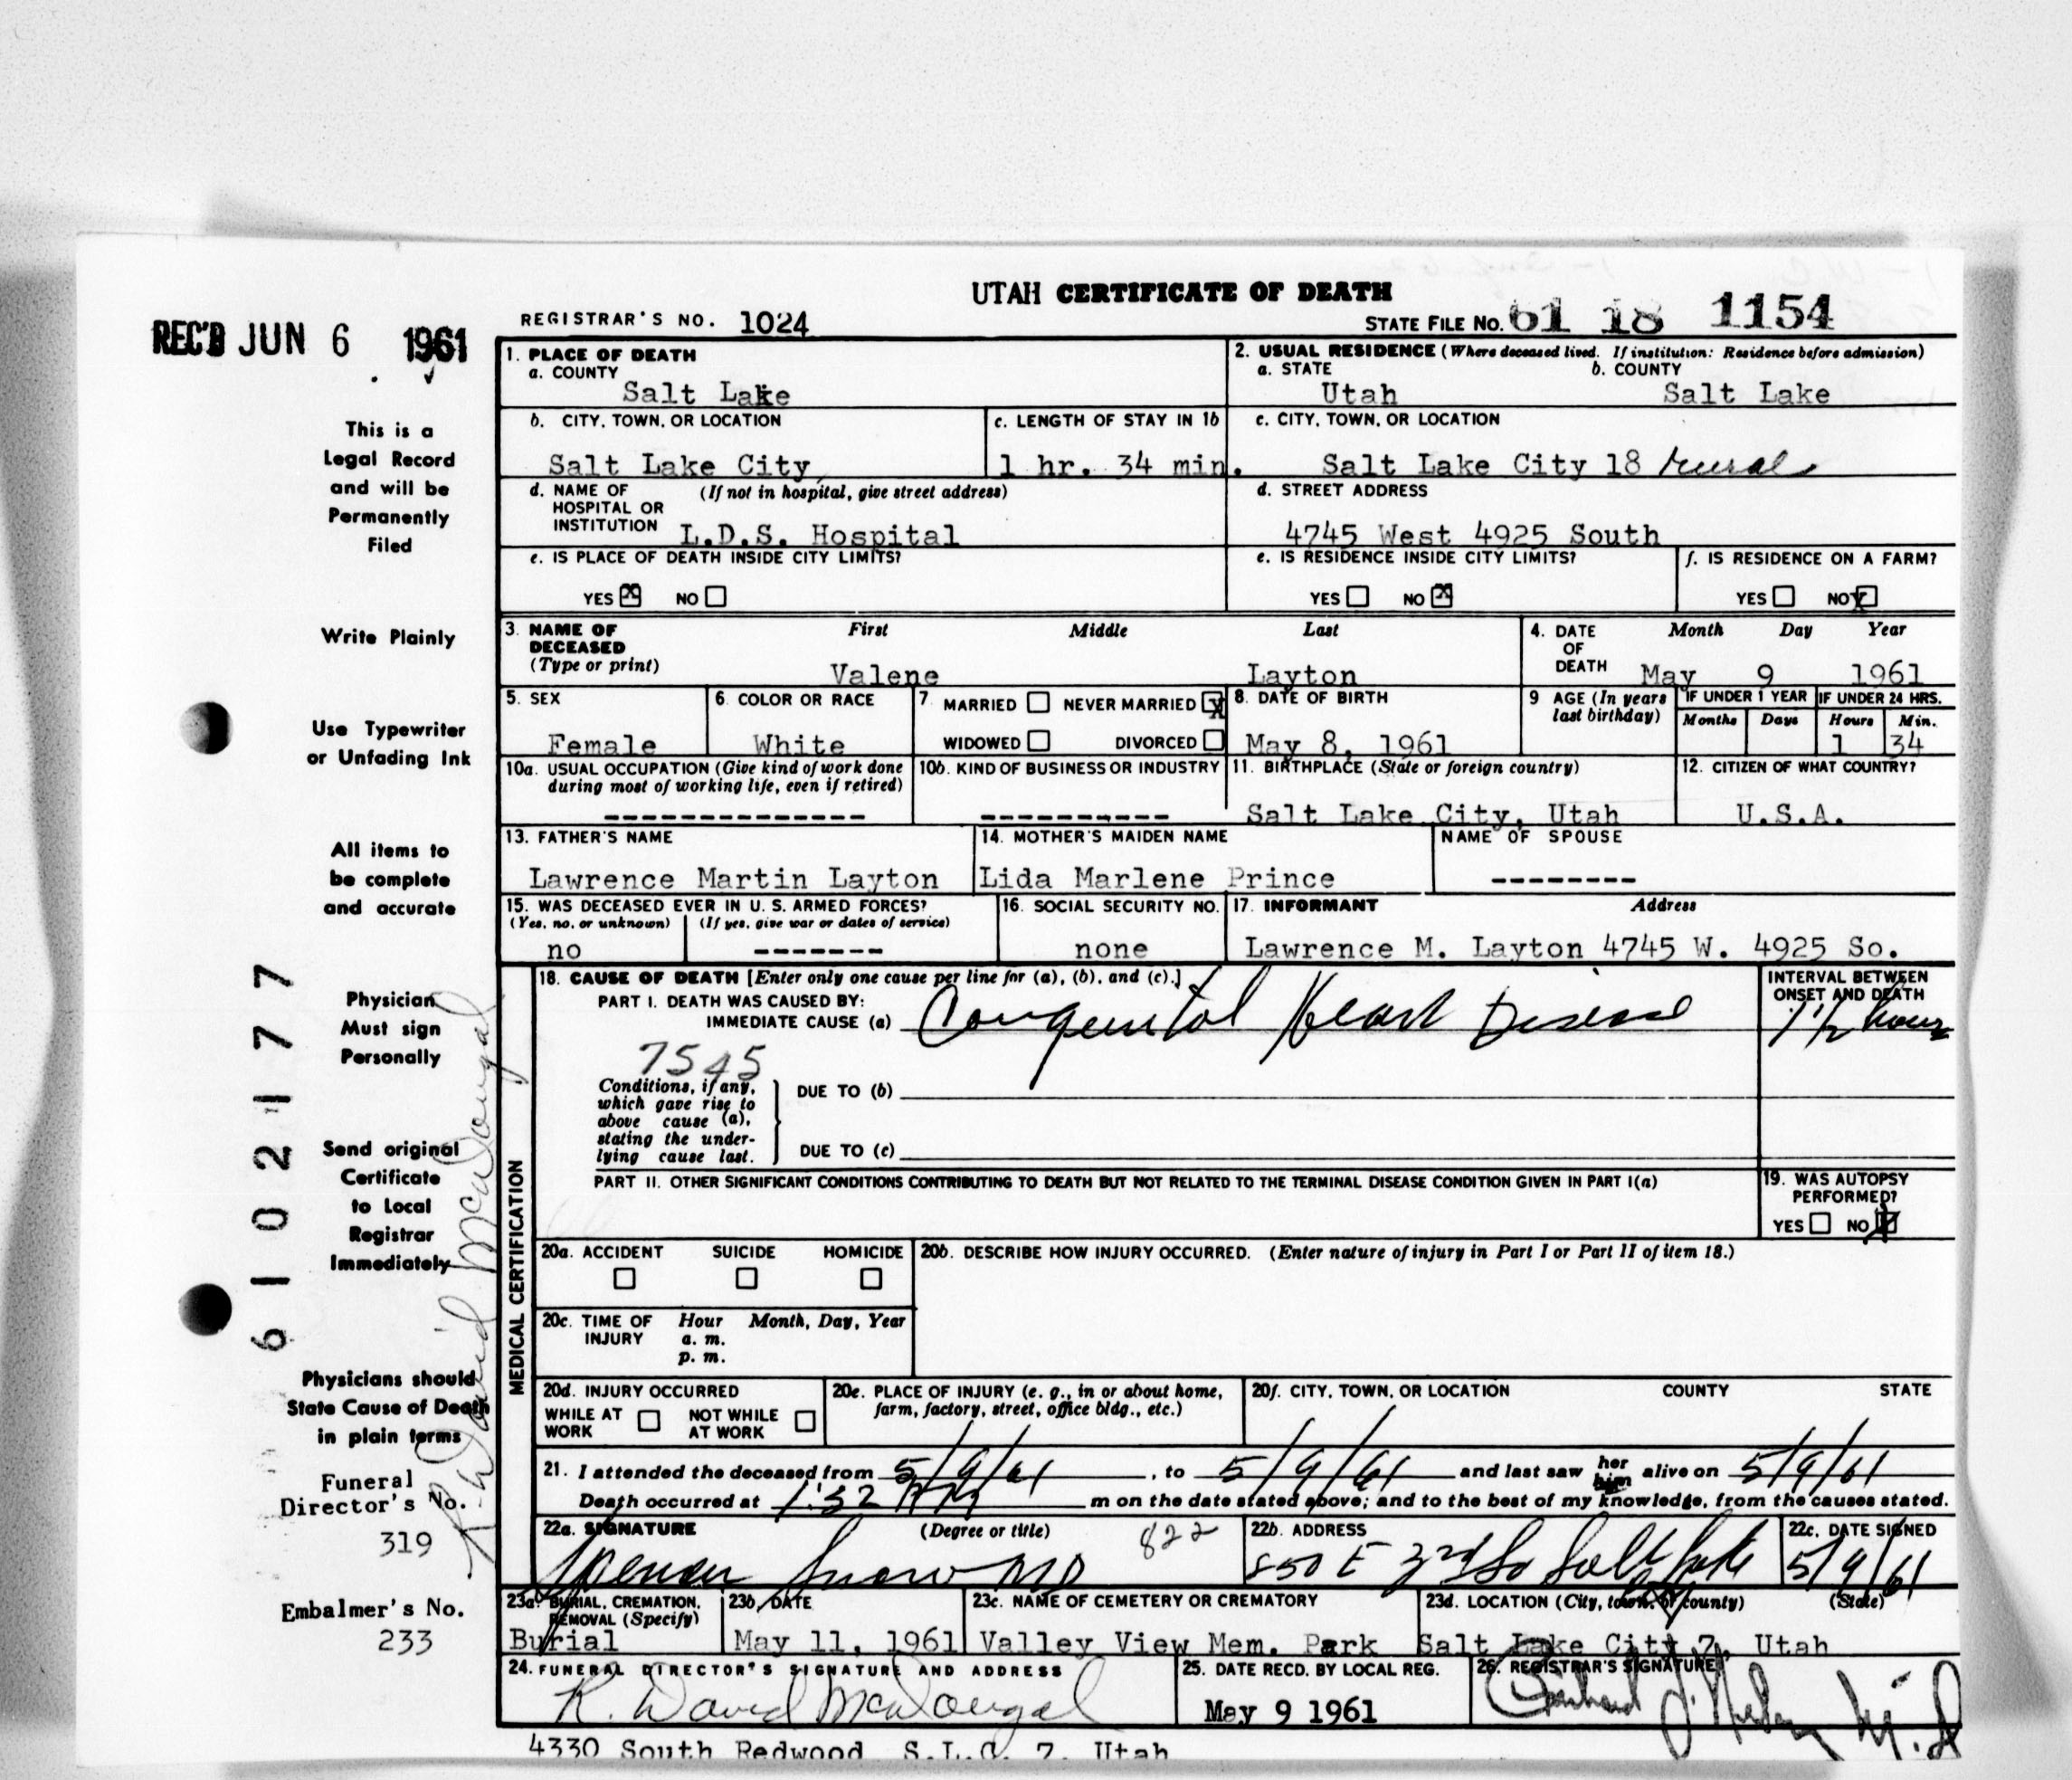 UTAH CERTIFICATE OF DEATH
REGISTRAR'S NO. 1024
STATE FILE NO. 61 18 1154
REC'D JUN 6 1961
This is a
Legal Record
and will be
Permanently
Filed
Write Plainly
Use Typewriter
or Unfading Ink
All items to
be complete
and accurate
Physician
Must sign
Personally
Send original
Certificate
to Local
Registrar
Immediately
Physicians should
State Cause of Death
in plain terms
Funeral
Director's No.
319
Embalmer's No.
233
6102177
R. David McDougal
1. PLACE OF DEATH
a. COUNTY
Salt Lake
2. USUAL RESIDENCE (Where deceased lived. If institution: Residence before admission)
a. STATE b. COUNTY
Utah Salt Lake
b. CITY, TOWN, OR LOCATION
Salt Lake City
c. LENGTH OF STAY IN 1b
1 hr. 34 min.
c. CITY, TOWN, OR LOCATION
Salt Lake City 18 rural
d. NAME OF (If not in hospital, give street address)
HOSPITAL OR
INSTITUTION L.D.S. Hospital
d. STREET ADDRESS
4745 West 4925 South
e. IS PLACE OF DEATH INSIDE CITY LIMITS?
YES X NO
e. IS RESIDENCE INSIDE CITY LIMITS?
YES NO X
f. IS RESIDENCE ON A FARM?
YES NO X
3. NAME OF First Middle Last
DECEASED
(Type or print)
Valene Layton
4. DATE Month Day Year
OF
DEATH May 9 1961
5. SEX
Female
6. COLOR OR RACE
White
7 MARRIED NEVER MARRIED X
WIDOWED DIVORCED
8. DATE OF BIRTH
May 8, 1961
9 AGE (In years
last birthday)
IF UNDER 1 YEAR
Months Days
IF UNDER 24 HRS.
Hours Min.
1 34
10a. USUAL OCCUPATION (Give kind of work done
during most of working life, even if retired)
--------------
10b. KIND OF BUSINESS OR INDUSTRY
----------
11. BIRTHPLACE (State or foreign country)
Salt Lake City, Utah
12. CITIZEN OF WHAT COUNTRY?
U.S.A.
13. FATHER'S NAME
Lawrence Martin Layton
14. MOTHER'S MAIDEN NAME
Lida Marlene Prince
NAME OF SPOUSE
--------
15. WAS DECEASED EVER IN U. S. ARMED FORCES?
(Yes, no, or unknown) (If yes, give war or dates of service)
no -------
16. SOCIAL SECURITY NO.
none
17. INFORMANT Address
Lawrence M. Layton 4745 W. 4925 So.
MEDICAL CERTIFICATION
18. CAUSE OF DEATH [Enter only one cause per line for (a), (b), and (c).]
PART I. DEATH WAS CAUSED BY:
IMMEDIATE CAUSE (a) Congenital Heart Disease
INTERVAL BETWEEN
ONSET AND DEATH
1 1/2 hours
7545
Conditions, if any,
which gave rise to
above cause (a),
stating the under-
lying cause last.
DUE TO (b)
DUE TO (c)
PART II. OTHER SIGNIFICANT CONDITIONS CONTRIBUTING TO DEATH BUT NOT RELATED TO THE TERMINAL DISEASE CONDITION GIVEN IN PART I(a)
19. WAS AUTOPSY
PERFORMED?
YES NO X
20a. ACCIDENT SUICIDE HOMICIDE
20b. DESCRIBE HOW INJURY OCCURRED. (Enter nature of injury in Part I or Part II of item 18.)
20c. TIME OF Hour Month, Day, Year
INJURY a. m.
p. m.
20d. INJURY OCCURRED
WHILE AT NOT WHILE
WORK AT WORK
20e. PLACE OF INJURY (e. g., in or about home,
farm, factory, street, office bldg., etc.)
20f. CITY, TOWN, OR LOCATION COUNTY STATE
21. I attended the deceased from 5/9/61, to 5/9/61 and last saw her him alive on 5/9/61
Death occurred at 1:32 AM m on the date stated above; and to the best of my knowledge, from the causes stated.
22a. SIGNATURE (Degree or title) 822
Spencer Snow MD
22b. ADDRESS
850 E 3rd So Salt Lake
22c. DATE SIGNED
5/9/61
23a. BURIAL, CREMATION,
REMOVAL (Specify)
Burial
23b. DATE
May 11, 1961
23c. NAME OF CEMETERY OR CREMATORY
Valley View Mem. Park
23d. LOCATION (City, town, or county) (State)
Salt Lake City 7, Utah
24. FUNERAL DIRECTOR'S SIGNATURE AND ADDRESS
R. David McDougal
25. DATE RECD. BY LOCAL REG.
May 9 1961
26. REGISTRAR'S SIGNATURE
4330 South Redwood S.L.C. 7, Utah